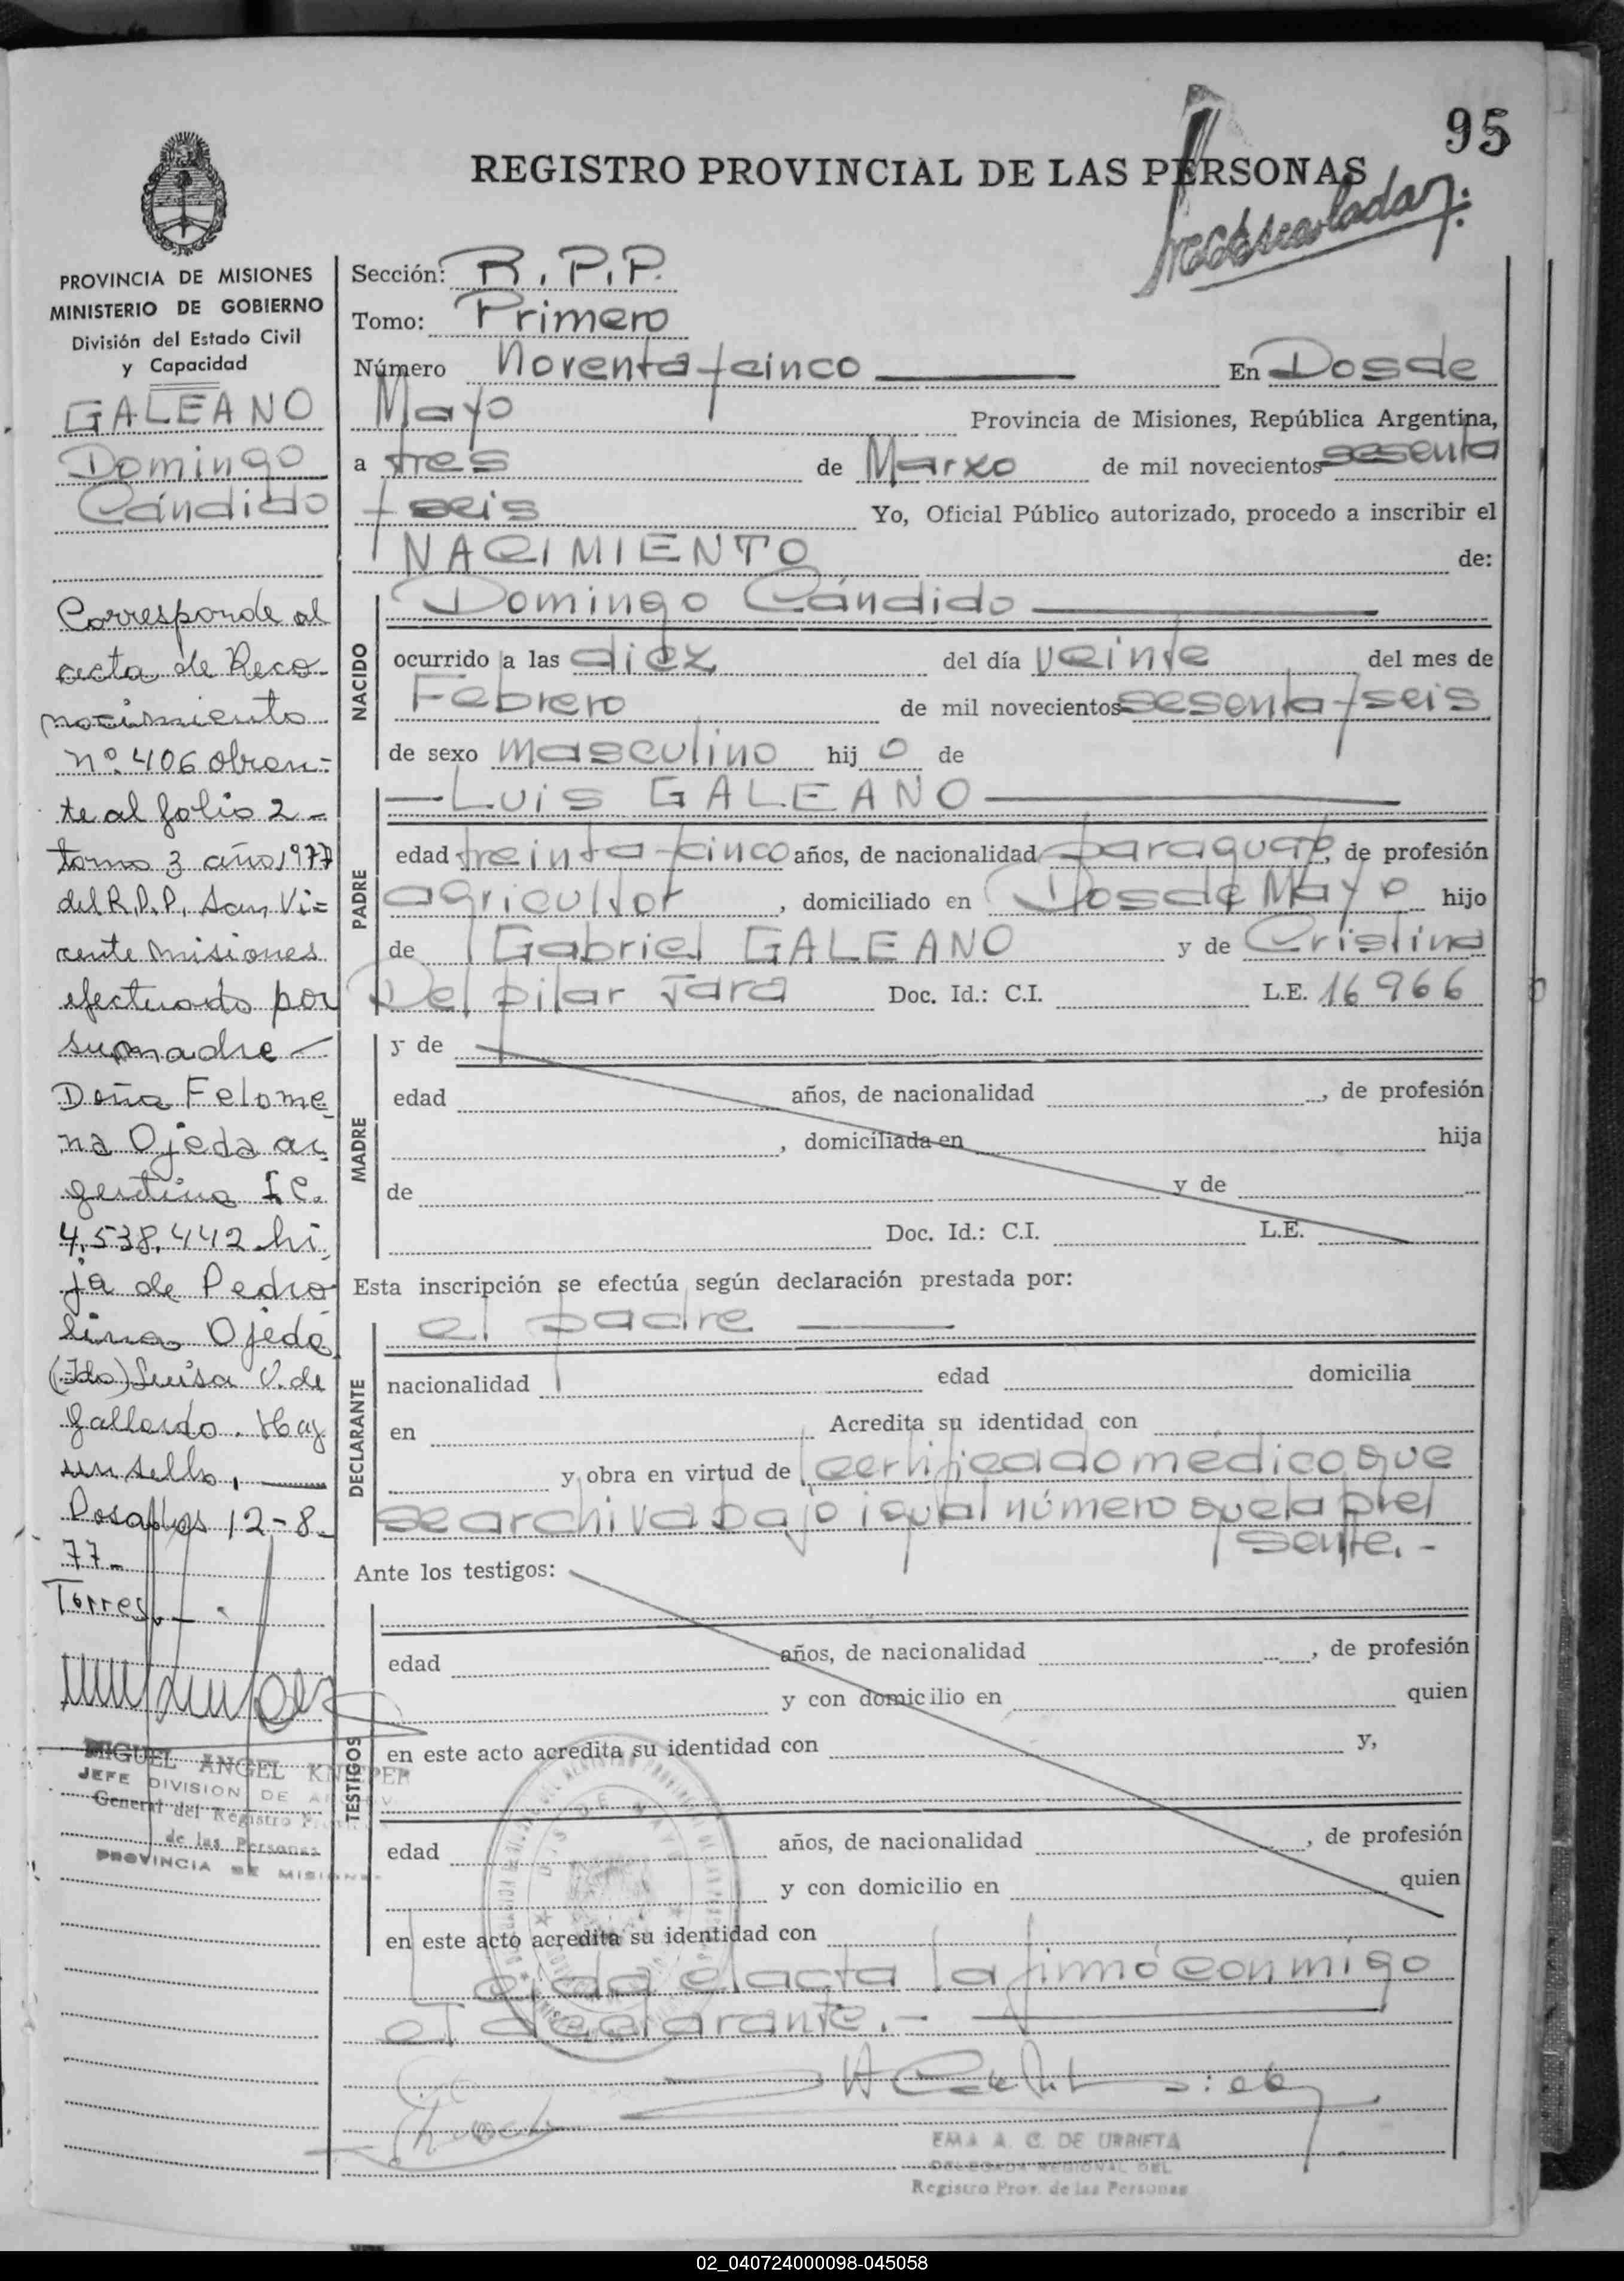 95
REGISTRO PROVINCIAL DE LAS PERSONAS
PROVINCIA DE MISIONES
MINISTERIO DE GOBIERNO
División del Estado Civil
y Capacidad
GALEANO
Domingo
Cándido
Corresponde al
acta de Reco-
nocimiento
nº 406 obran-
te al folio 2-
tomo 3 año 1977
del R.P.P. San Vi=
cente Misiones
efectuado por
su madre
Doña Felome
na Ojeda ar
gentina L.C.
4.538.442 hi
ja de Pedro
lina Ojeda
(Fdo) Luisa V. de
Gallardo. Hay
un sello,
Posadas 12-8-
77-
Torres.
MIGUEL ANGEL KNEPER
JEFE DIVISION DE
General del Registro
de las Personas
PROVINCIA DE MISIONES
Sección: R.P.P.
Tomo: Primero
Número Noventa y cinco En Dos de
Mayo Provincia de Misiones, República Argentina,
a tres de Marzo de mil novecientos sesenta
y seis Yo, Oficial Público autorizado, procedo a inscribir el
NACIMIENTO de:
Domingo Cándido
NACIDO
ocurrido a las diez del día veinte del mes de
Febrero de mil novecientos sesenta y seis
de sexo masculino hij o de
PADRE
Luis GALEANO
edad treinta y cinco años, de nacionalidad paraguay, de profesión
agricultor, domiciliado en Dos de Mayo hijo
de Gabriel GALEANO y de Cristina
Del pilar Jara Doc. Id.: C.I. L.E. 16966
MADRE
y de
edad años, de nacionalidad , de profesión
, domiciliada en hija
de y de
Doc. Id.: C.I. L.E.
Esta inscripción se efectúa según declaración prestada por:
DECLARANTE
el padre
nacionalidad edad domicilia
en Acredita su identidad con
y obra en virtud de certificado médico que
se archiva bajo igual número que la pre
sente.-
Ante los testigos:
TESTIGOS
edad años, de nacionalidad , de profesión
y con domicilio en quien
en este acto acredita su identidad con y,
edad años, de nacionalidad , de profesión
y con domicilio en quien
en este acto acredita su identidad con
Leida el acta la firmó conmigo
el declarante.-
EMA A. C. DE URRIETA
DELEGADA REGIONAL DEL
Registro Prov. de las Personas
02_040724000098-045058